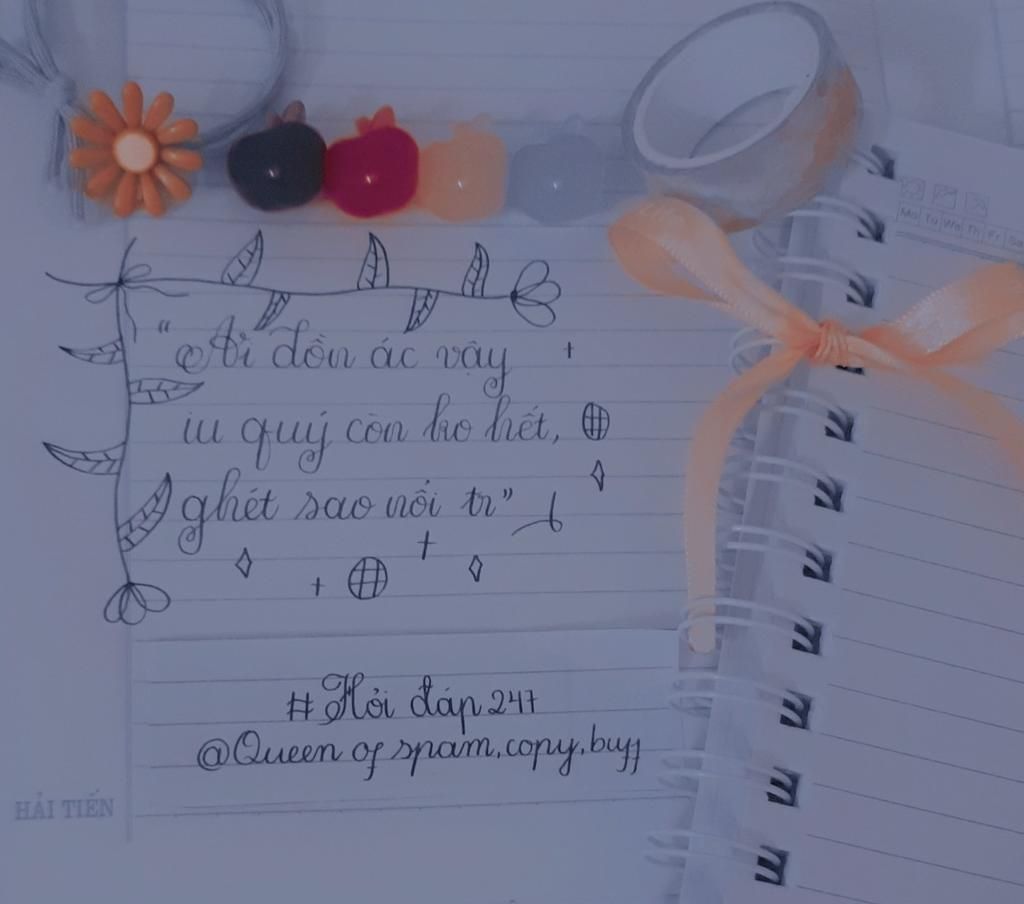 “Ai dồn ác vậy
iu quý còn ko hết,
ghét sao nổi tr”
#Hỏi đáp 247
@Queen of spam,copy,buff
HẢI TIẾN
Mo Tu We Th Fr Sa